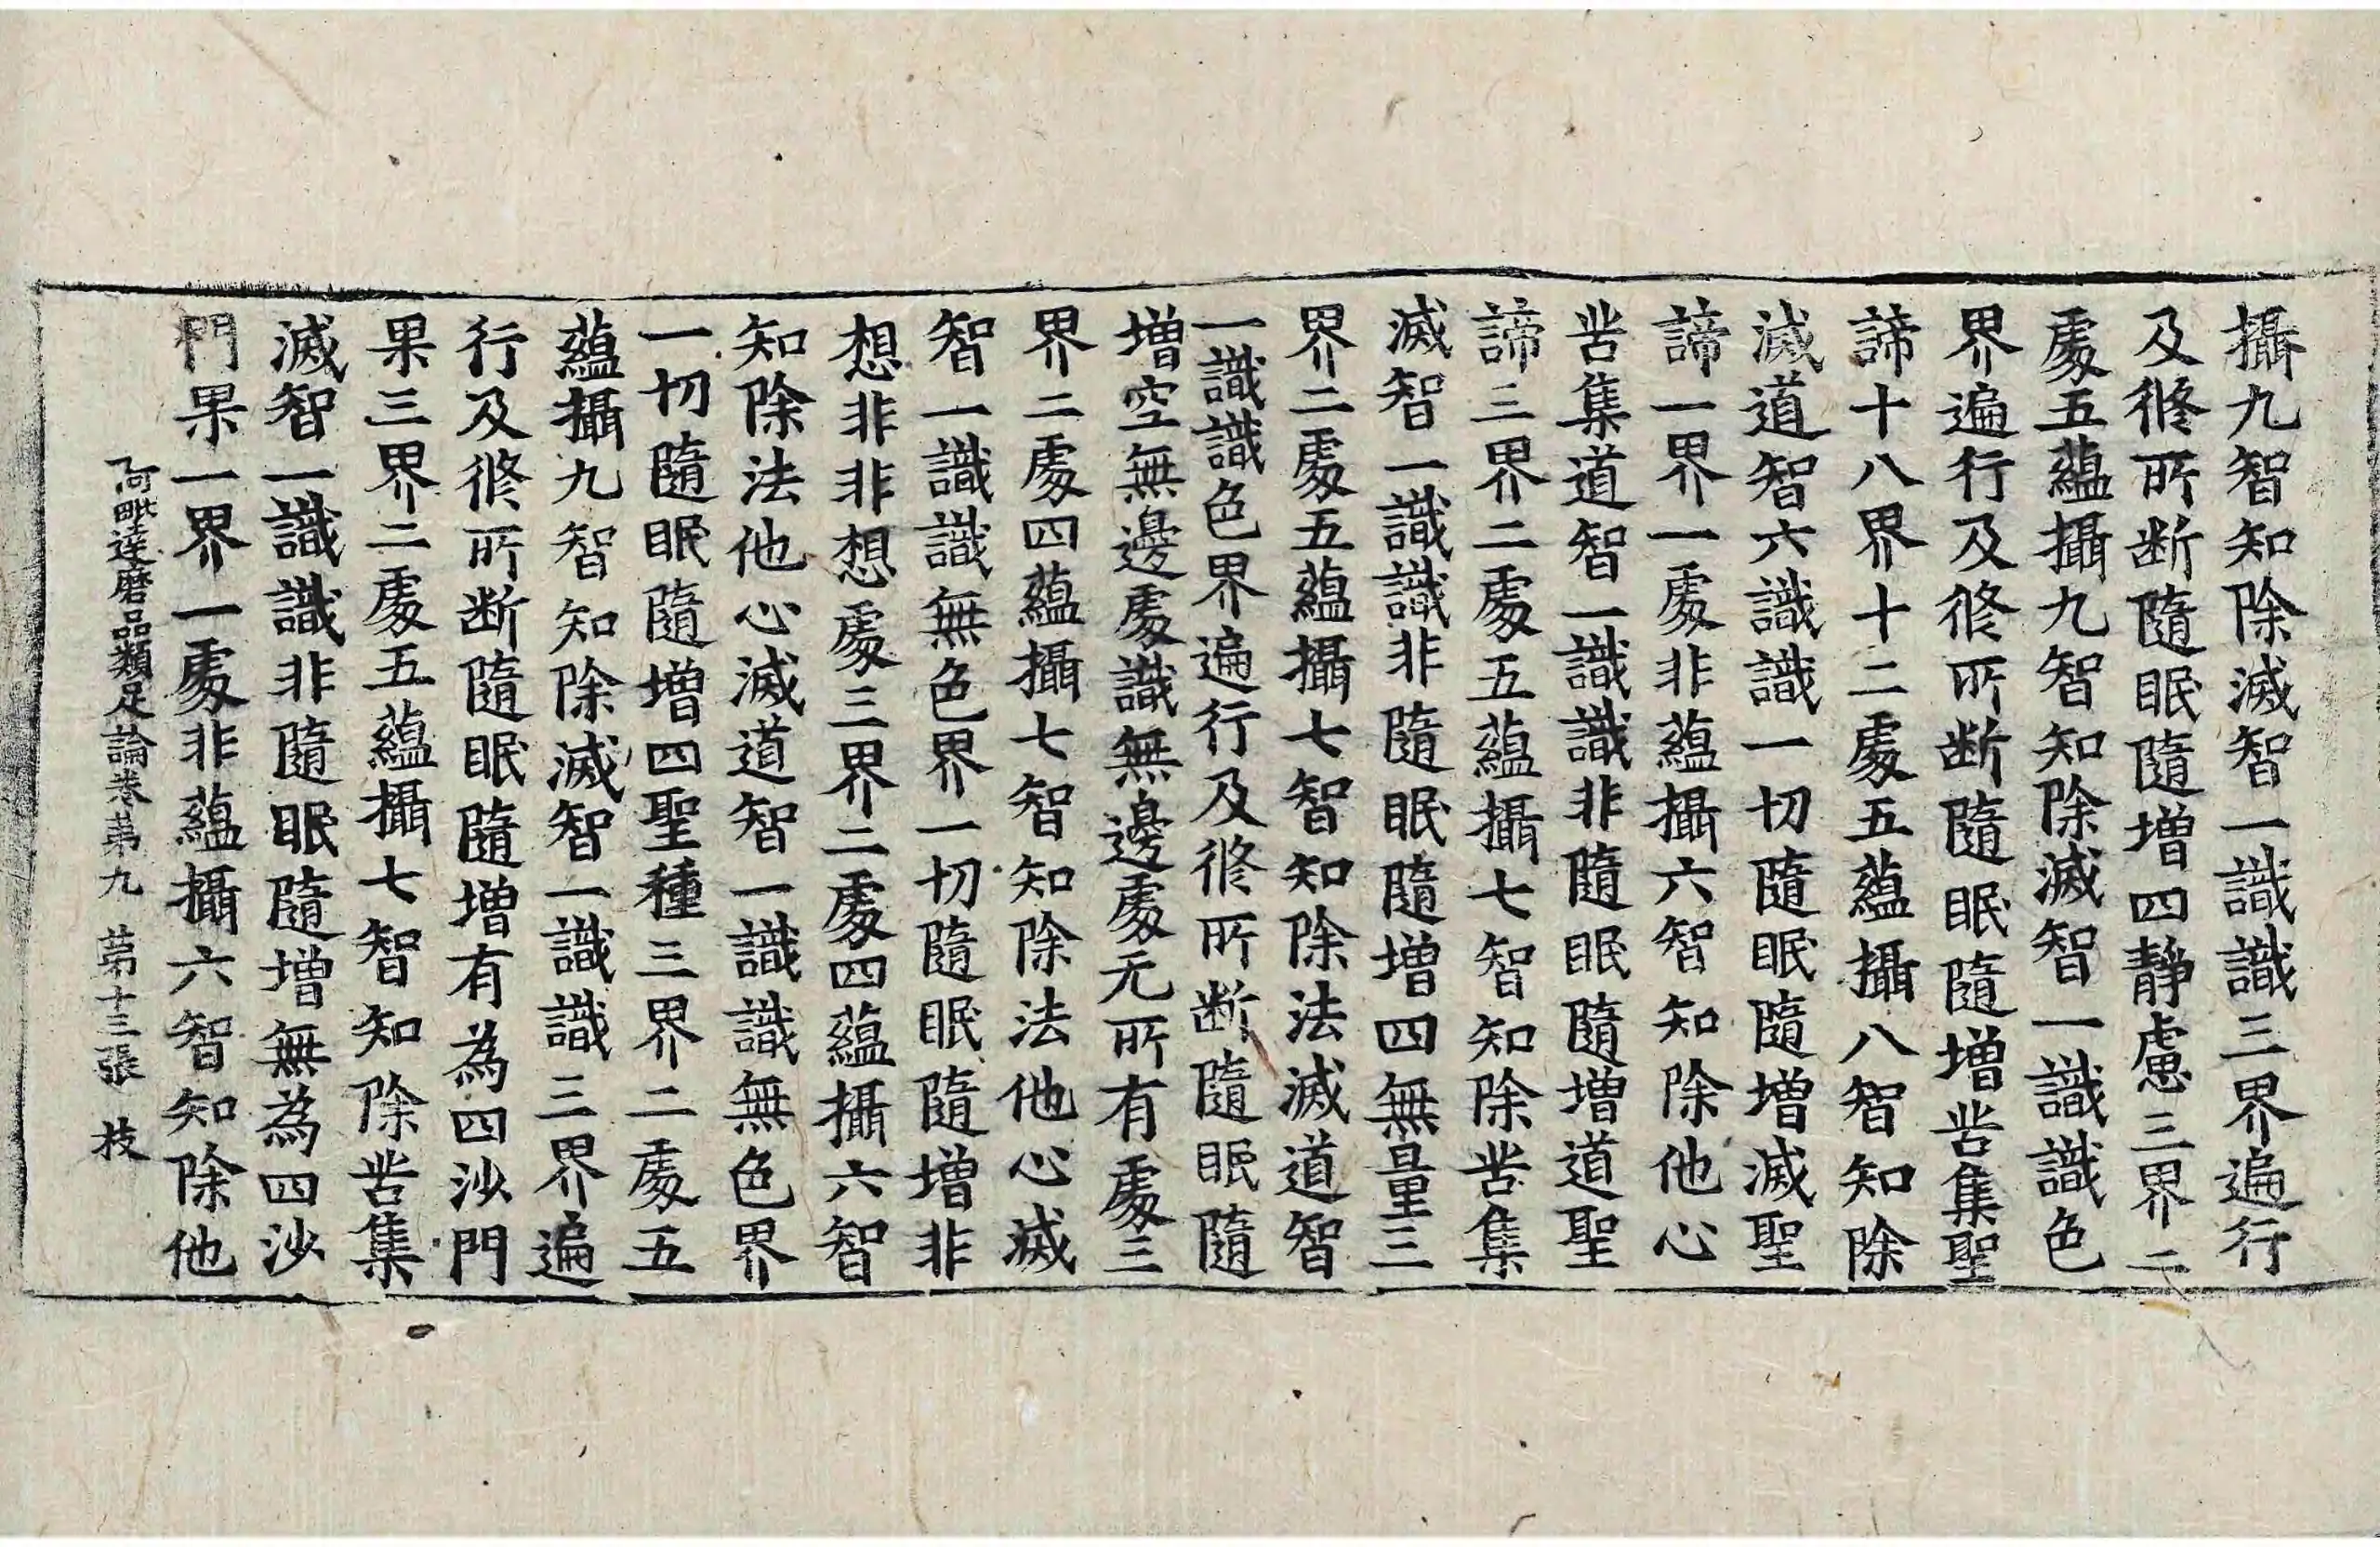 攝九智知除滅智一識識三界遍行
及修所断隨眠隨增四靜慮三界二
處五蘊攝九智知除滅智一識識色
界遍行及修所断隨眠隨增苦集聖
諦十八界十二處五蘊攝八智知除
滅道智六識識一切隨眠隨增滅聖
諦一界一處非蘊攝六智知除他心
苦集道智一識識非隨眠隨增道聖
諦三界二處五蘊攝七智知除苦集
滅智一識識非隨眠隨增四無量三
界二處五蘊攝七智知除法滅道智
一識識色界遍行及修所断隨眠隨
增空無邊處識無邊處无所有處三
界二處四蘊攝七智知除法他心滅
智一識識無色界一切隨眠隨增非
想非非想處三界二處四蘊攝六智
知除法他心滅道智一識識無色界
一切隨眠隨增四聖種三界二處五
蘊攝九智知除滅智一識識三界遍
行及修所断隨眠隨增有為四沙門
果三界二處五蘊攝七智知除苦集
滅智一識識非隨眠隨增無為四沙
門果一界一處非蘊攝六智知除他
阿毗達磨品類足論卷第九 第十三張 枝